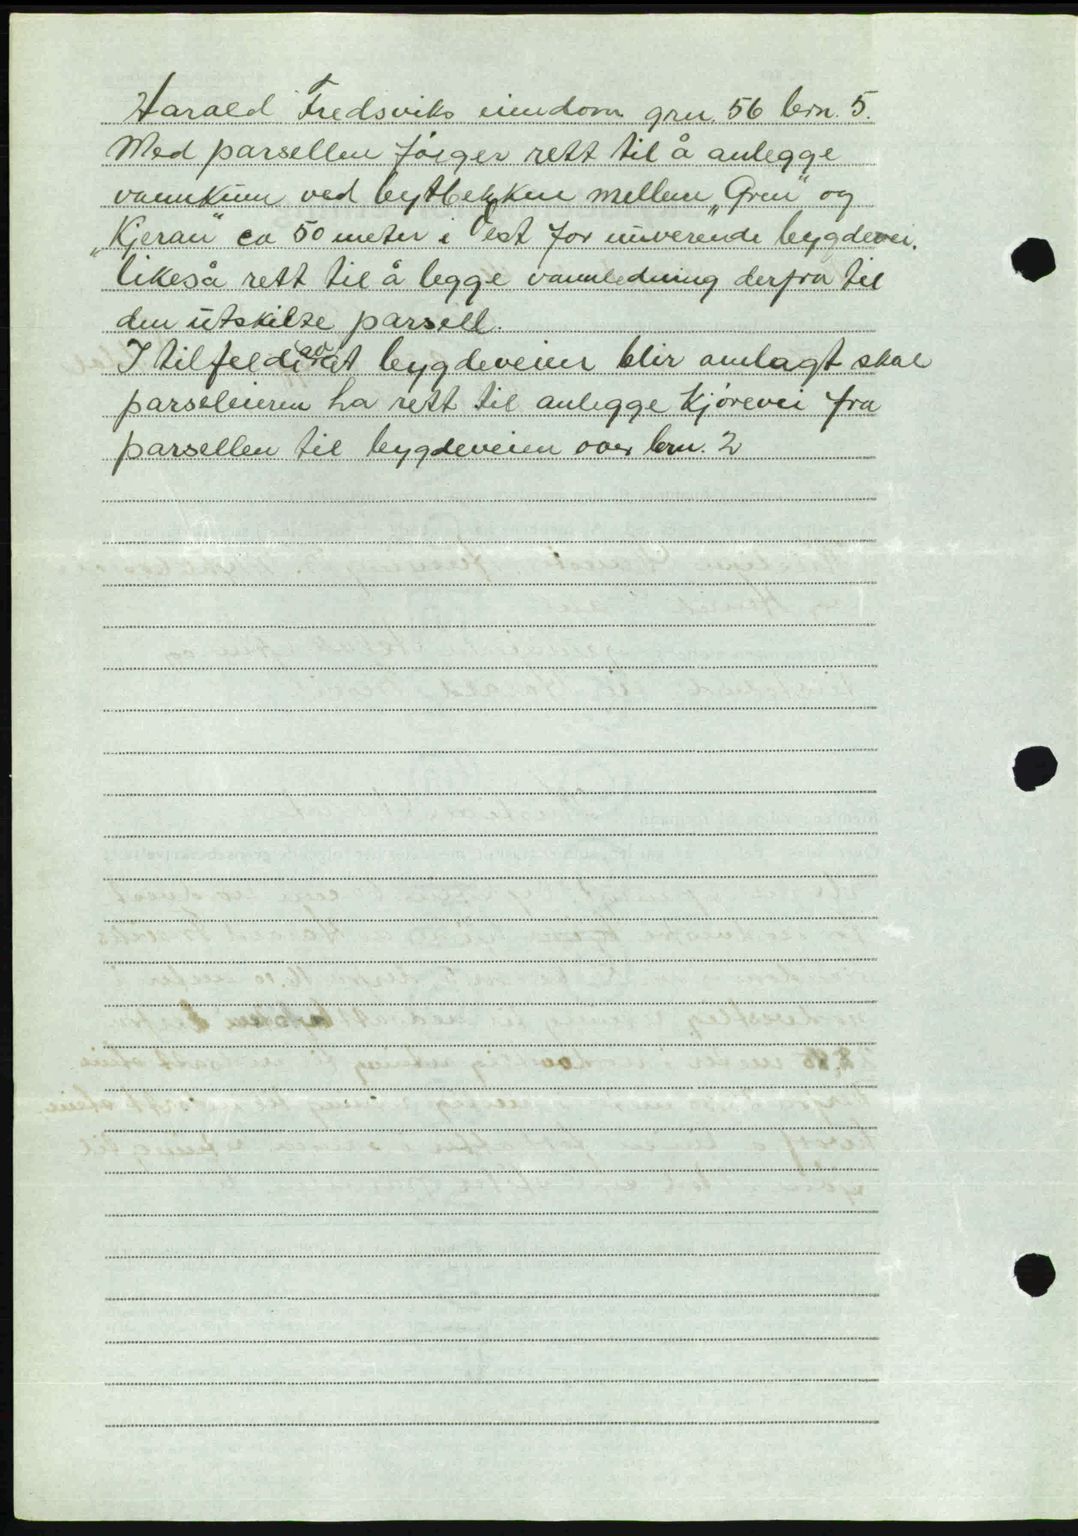 Harald Fredsviks eiendom grn. 56 brn. 5.
Med parsellen følger rett til å anlegge
vannkum ved bytbekken mellem „Gren" og
„Kjeran" ca 50 meter i Vest for nuverende bygdevei.
likeså rett til å legge vannledning derfra til
den utskilte parsell.
I tilfelde av at bygdeveien blir omlagt skal
parseleieren ha rett til anlegge kjørevei fra
parsellen til bygdeveien over brn. 2